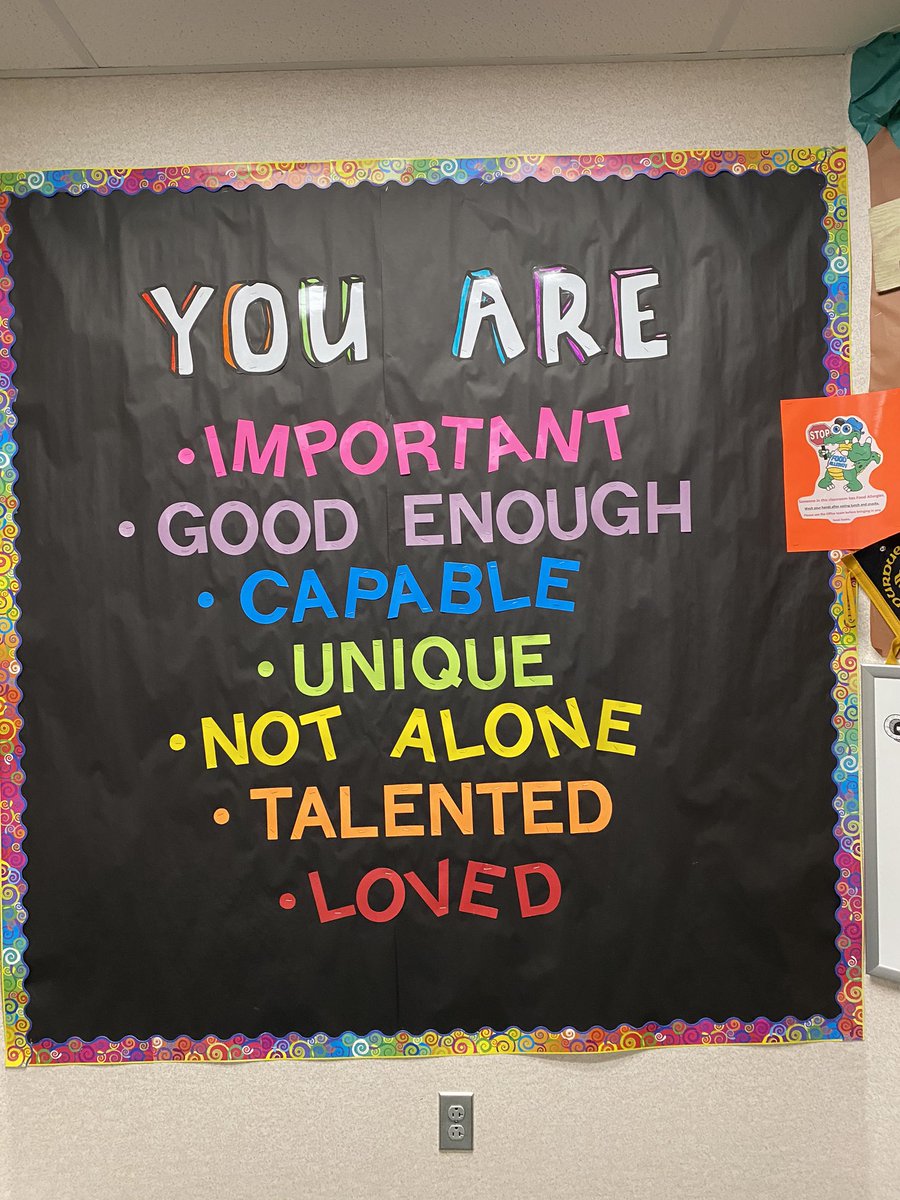 YOU ARE
• IMPORTANT
• GOOD ENOUGH
• CAPABLE
• UNIQUE
• NOT ALONE
• TALENTED
• LOVED
STOP
FOOD
ALLERGY
Someone in this classroom has Food Allergies.
Wash your hands after eating lunch and snacks.
Please see the Office team before bringing in any
PURDUE